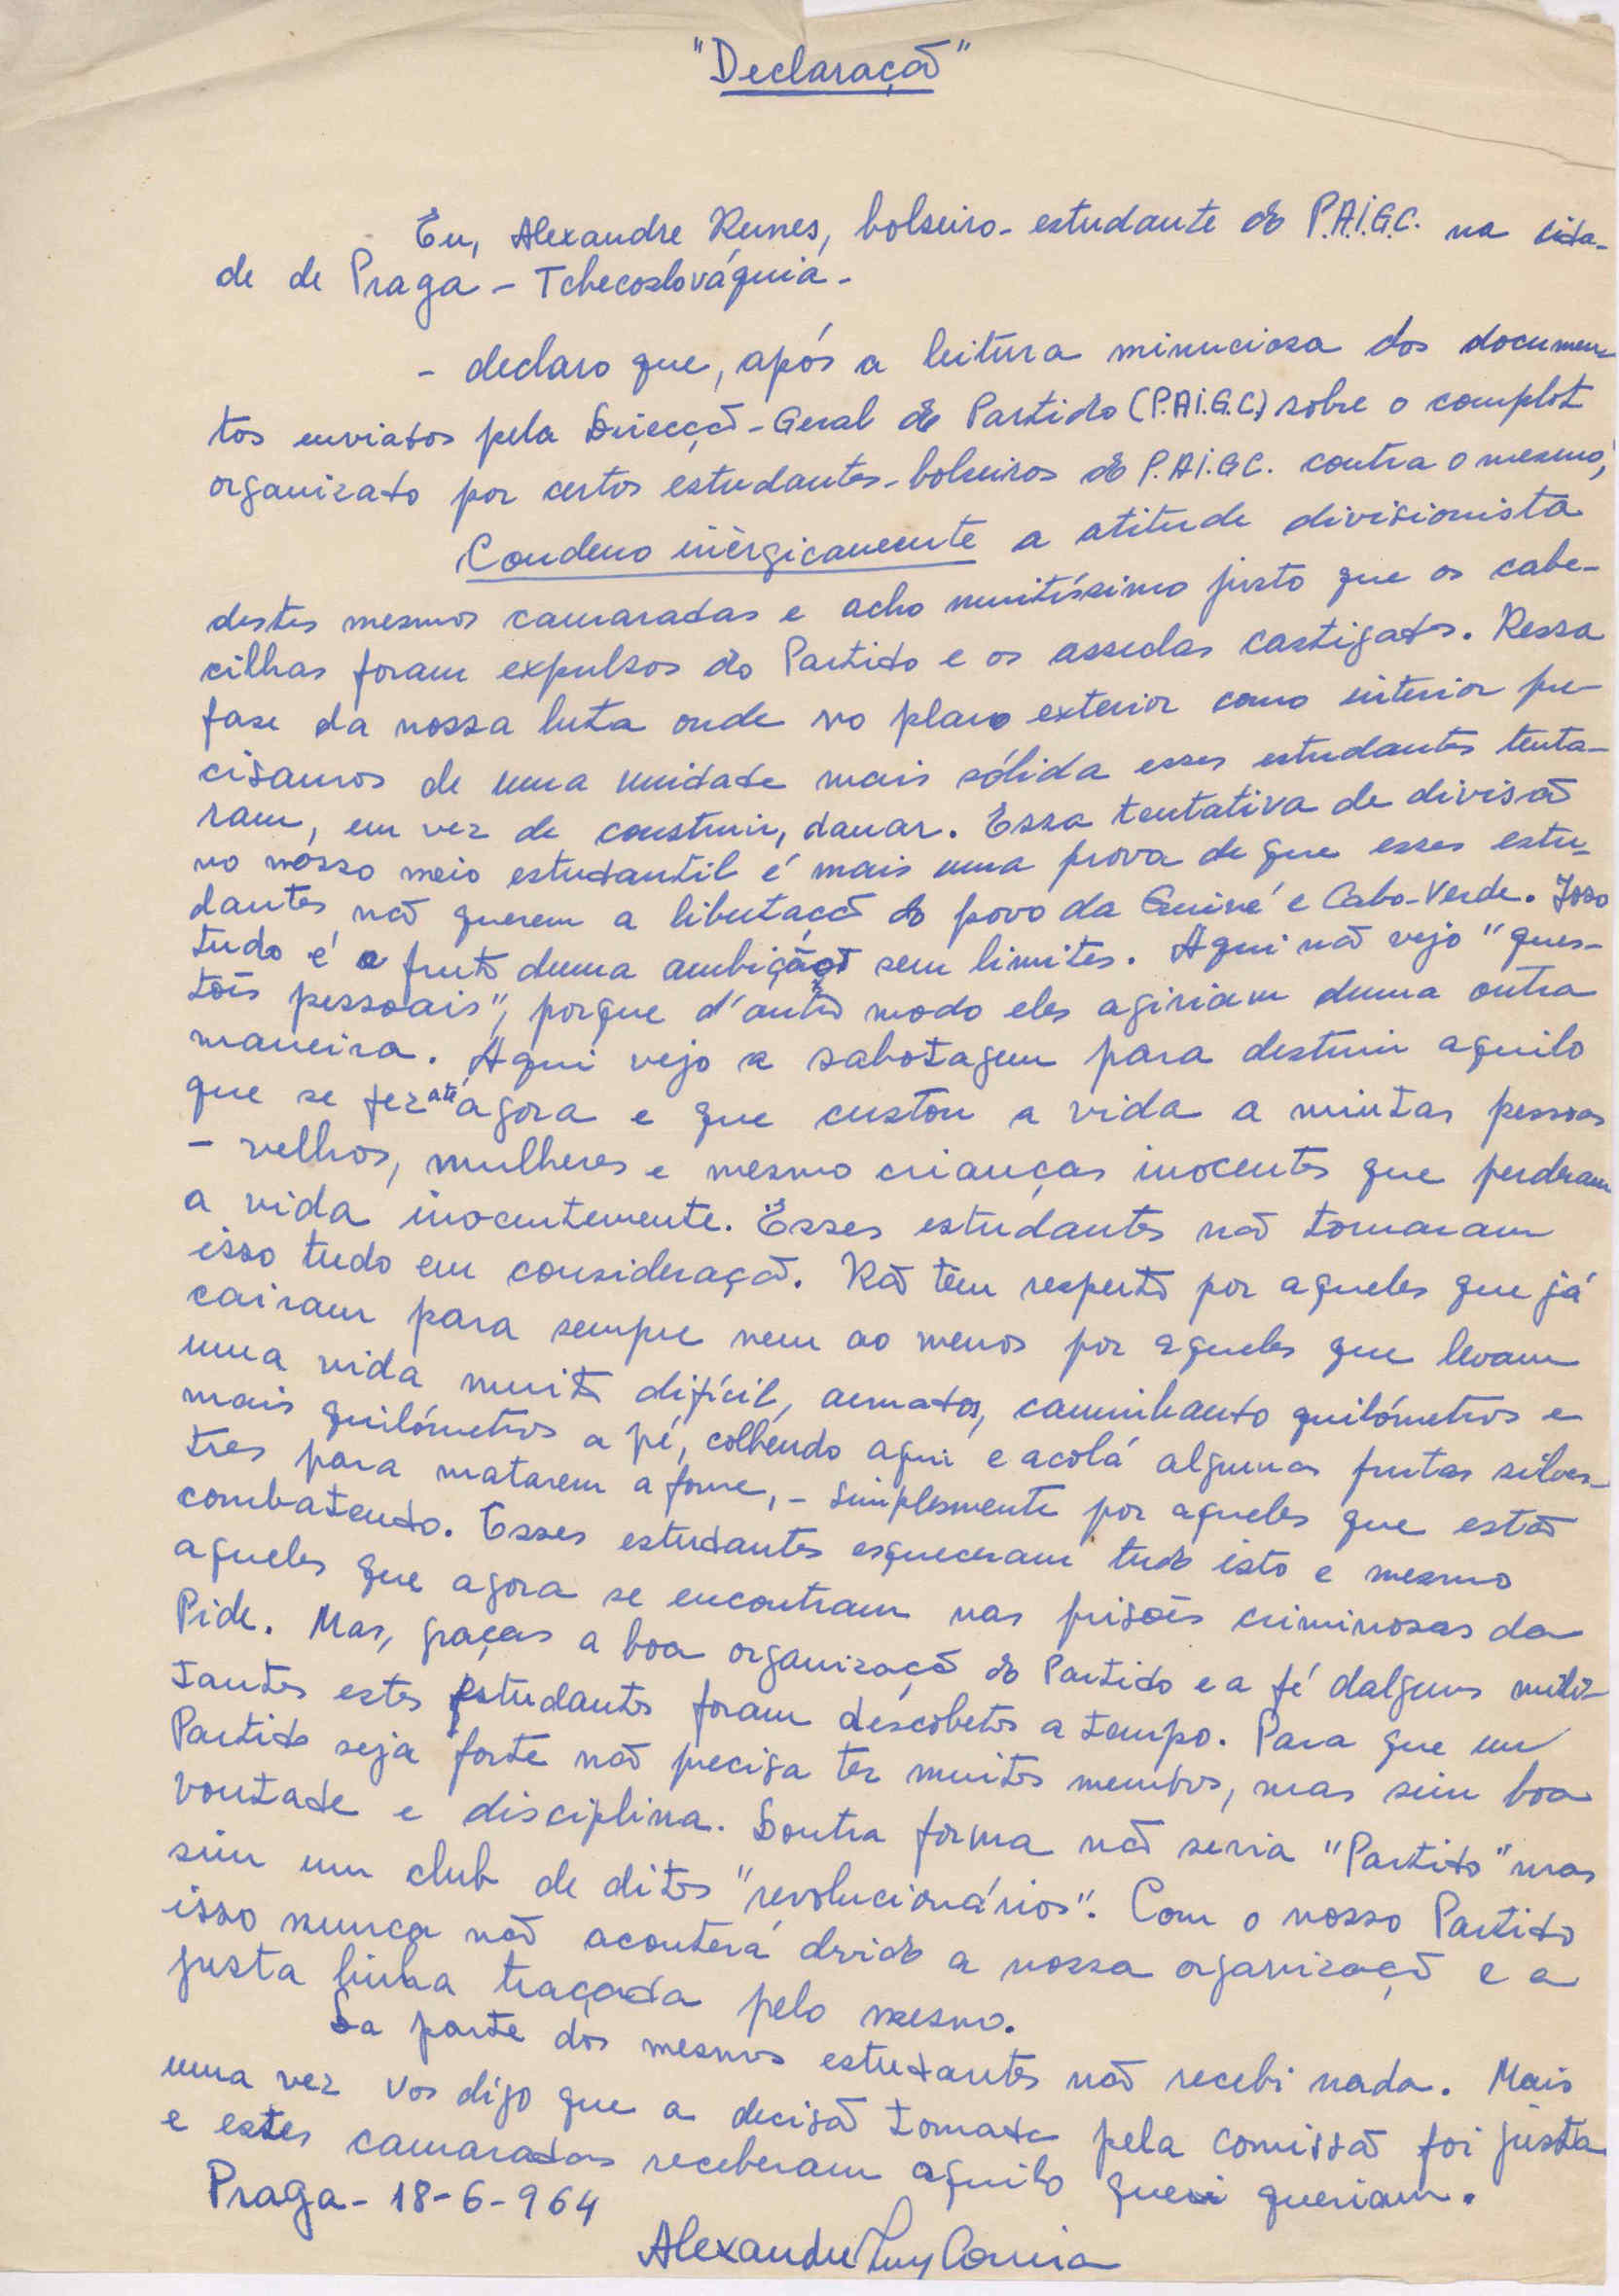 "Declaração"
Eu, Alexandre Nunes, bolseiro-estudante do P.A.I.G.C. na cida-
de de Praga - Tchecoslováquia -
- declaro que, após a leitura minuciosa dos documen-
tos enviados pela Direcção-Geral do Partido (P.A.I.G.C.) sobre o complot
organizado por certos estudantes-bolseiros do P.A.I.G.C. contra o mesmo,
Condeno inèrgicamente a atitude divisionista
destes mesmos camaradas e acho muitíssimo justo que os cabe-
cilhas foram expulsos do Partido e os asseclas castigados. Nessa
fase da nossa luta onde no plano exterior como interior pre-
cisamos de uma unidade mais sólida esses estudantes tenta-
ram, em vez de construir, danar. Essa tentativa de divisão
no nosso meio estudantil é mais uma prova de que esses estu-
dantes não querem a libertação do povo da Guiné e Cabo-Verde. Isso
tudo é o fruto duma ambição sem limites. Aqui não vejo "ques-
tões pessoais", porque d'outro modo eles agiriam duma outra
maneira. Aqui vejo a sabotagem para destruir aquilo
que se fez até agora e que custou a vida a muitas pessoas
- velhos, mulheres e mesmo crianças inocentes que perderam
a vida inocentemente. Esses estudantes não tomaram
isso tudo em consideração. Não têm respeito por aqueles que já
cairam para sempre nem ao menos por aqueles que levam
uma vida muito difícil, armados, caminhando quilómetros e
mais quilómetros a pé, colhendo aqui e acolá algumas frutas silves-
tres para matarem a fome, - simplesmente por aqueles que estão
combatendo. Esses estudantes esqueceram tudo isto e mesmo
aqueles que agora se encontram nas prisões criminosas da
Pide. Mas, graças a boa organização do Partido e a fé dalguns mili-
tantes estes estudantes foram descobetos a tempo. Para que um
Partido seja forte não precisa ter muitos membros, mas sim boa
vontade e disciplina. Doutra forma não seria "Partido" mas
sim um club de ditos "revolucionários". Com o nosso Partido
isso nunca não aconterá devido a nossa organização e a
justa linha traçada pelo mesmo.
Da parte dos mesmos estudantes não recebi nada. Mais
uma vez vos digo que a decisão tomada pela comissão foi justa
e estes camaradas receberam aquilo que queriam.
Praga - 18-6-964
Alexandre Correia